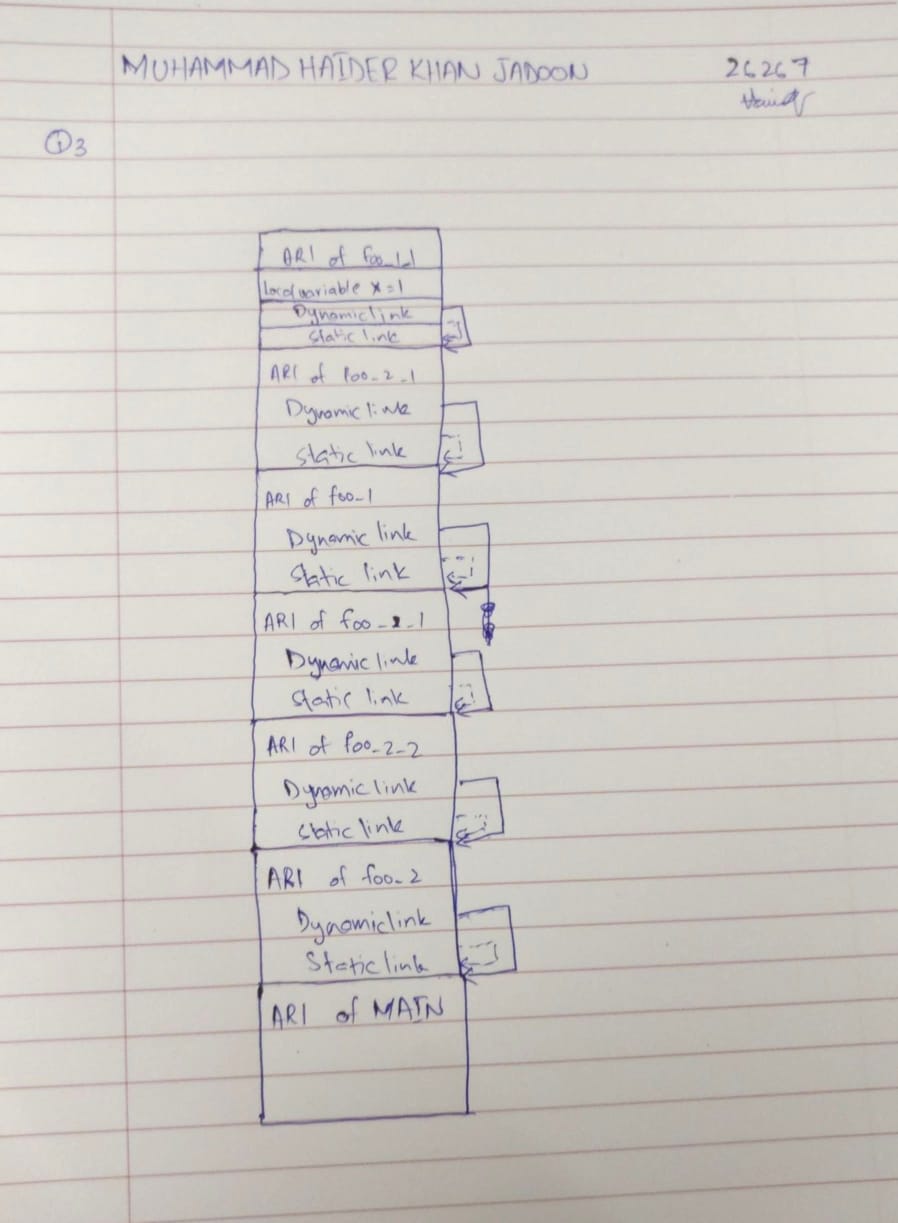 MUHAMMAD HAIDER KHAN JADOON 26267
Haider
Q3
ARI of foo_1_1
Local variable x=1
Dynamic link
Static link
ARI of foo_2_1
Dynamic link
Static link
ARI of foo_1
Dynamic link
Static link
ARI of foo_2_1
Dynamic link
Static link
ARI of foo_2_2
Dynamic link
Static link
ARI of foo_2
Dynamic link
Static link
ARI of MAIN